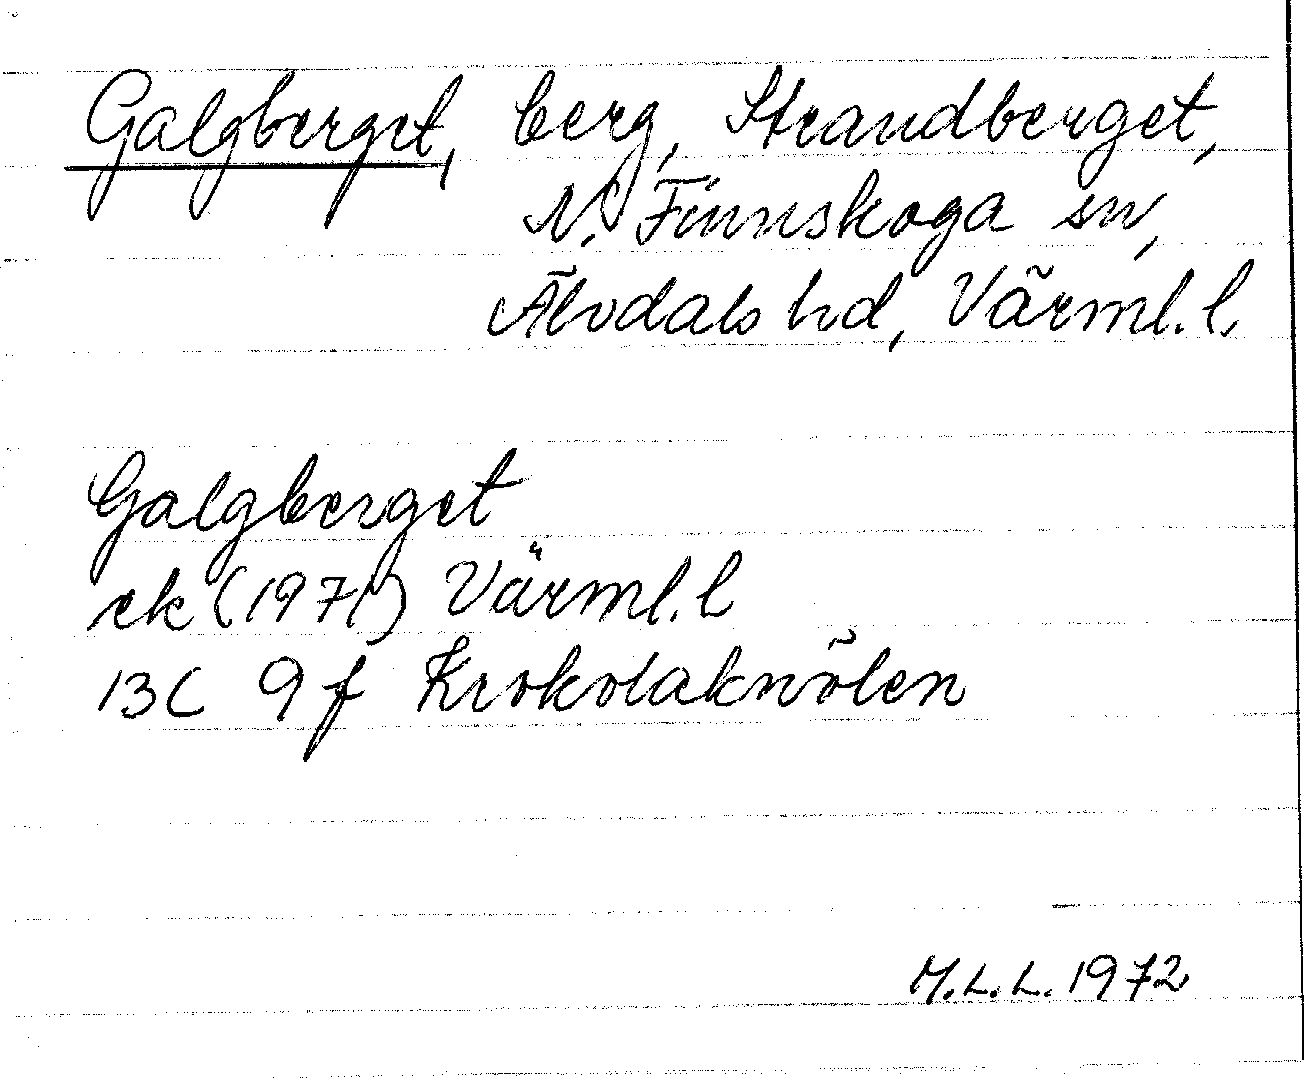 Galgberget, berg, Strandberget,
N. Finnskoga sn,
Älvdals hd, Värml. l.
Galgberget
ek (1971) Värml. l
13C 9f Krokolaknölen
M.L.L. 1972